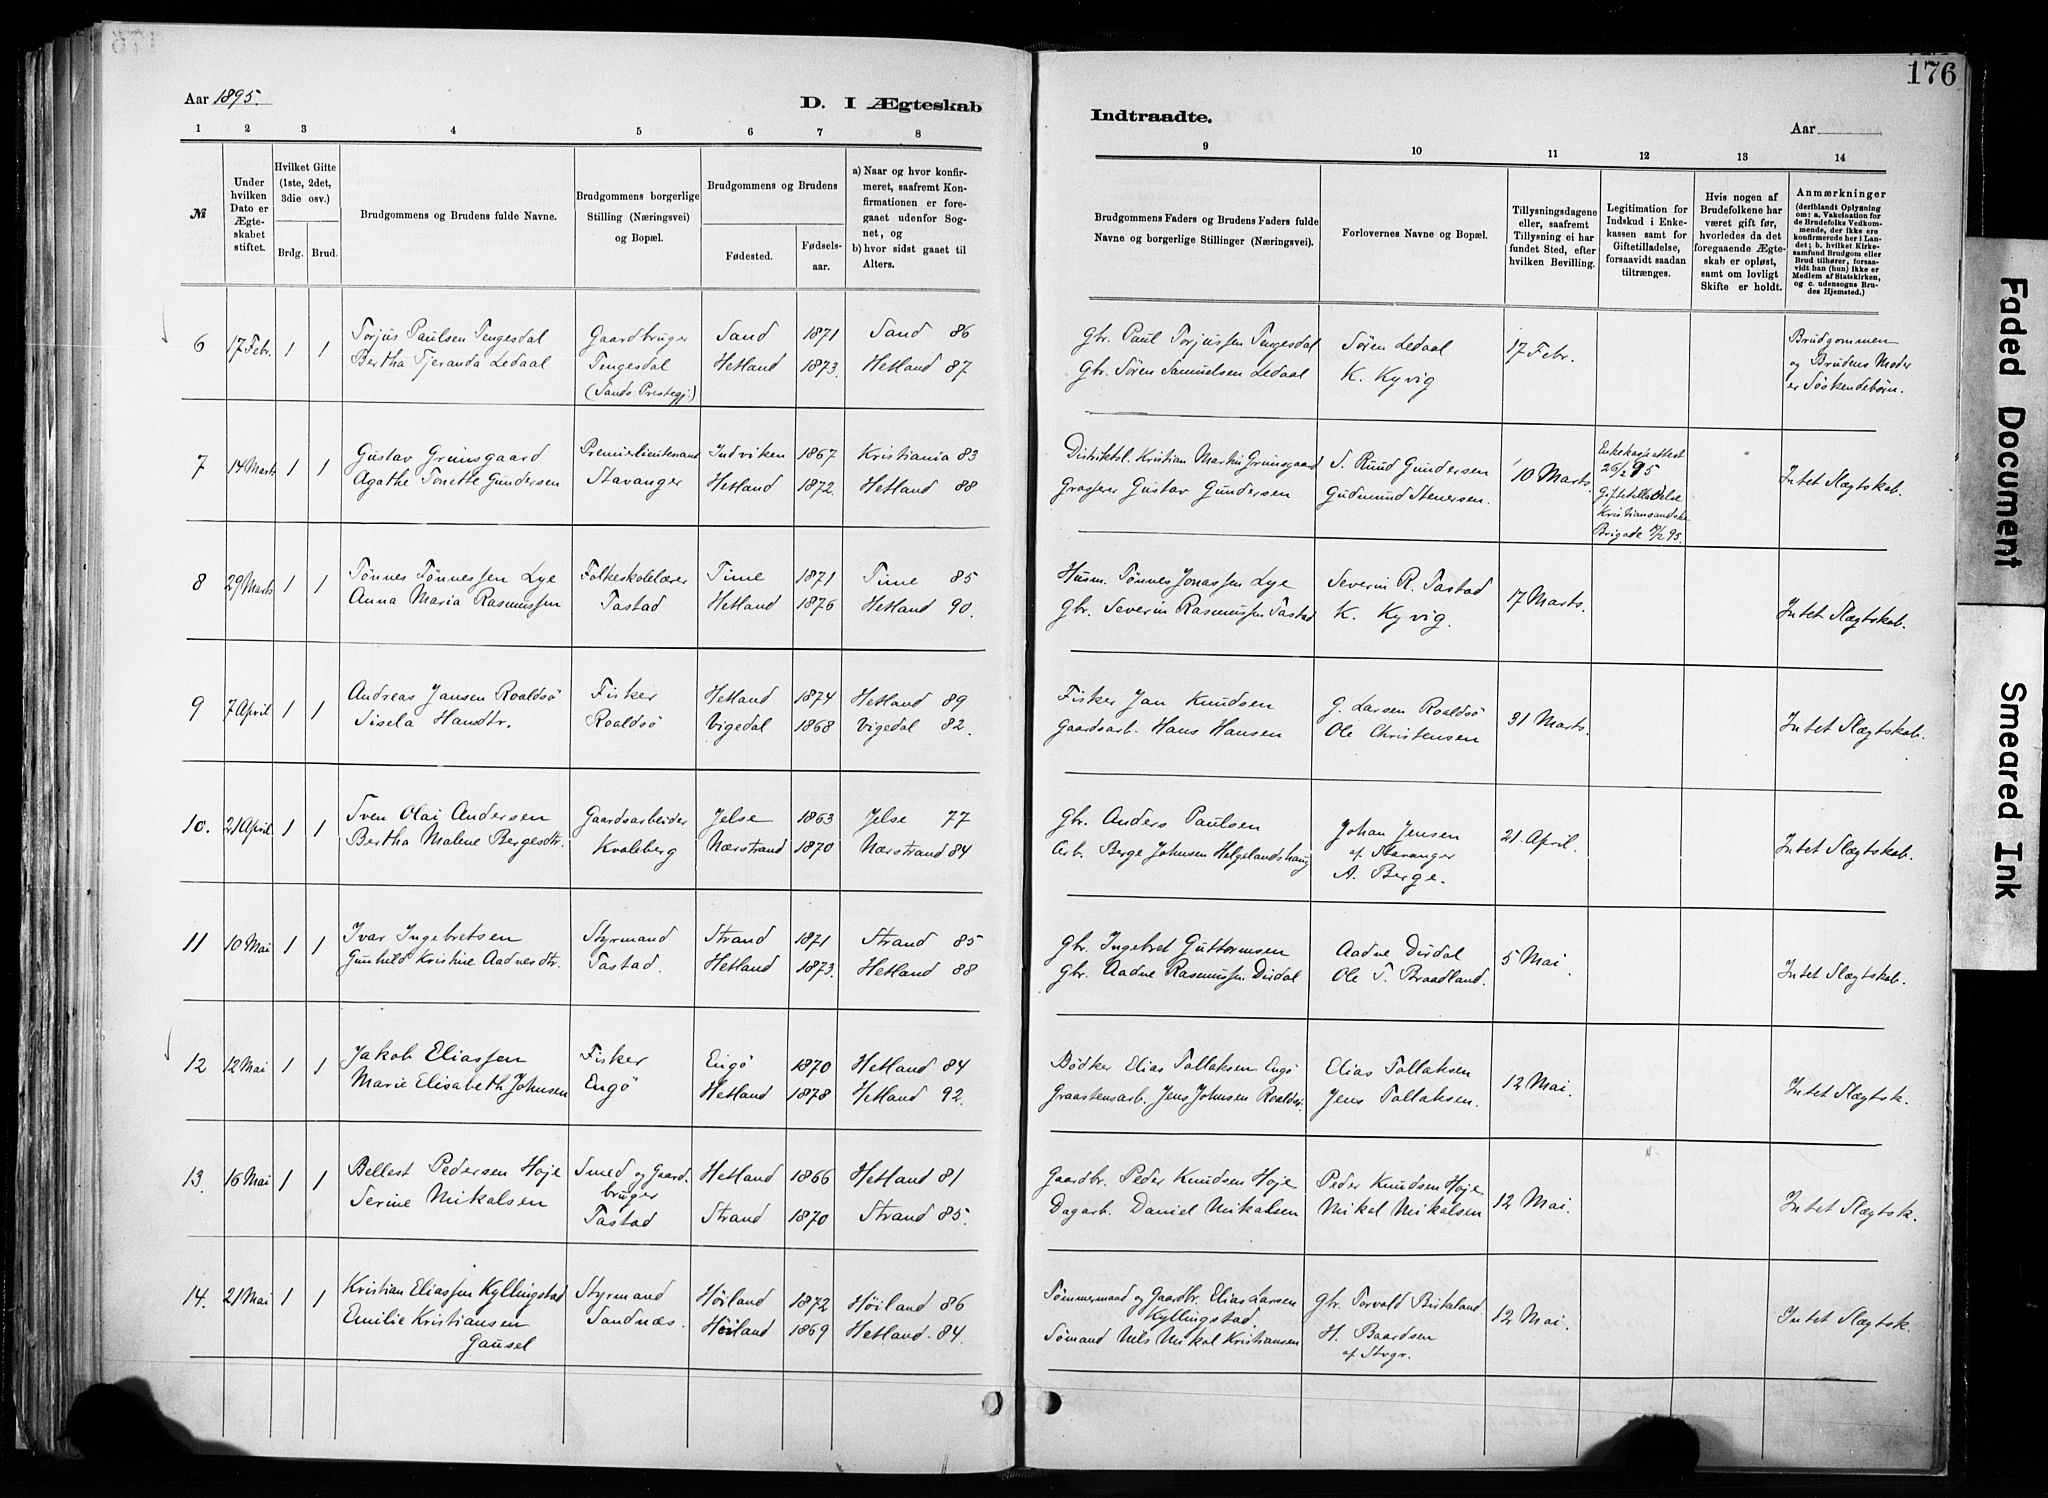 176
Aar 1895.
D. I Ægteskab
Indtraadte.
Aar
1 2 3 4 5 6 7 8
9 10 11 12 13 14
№
Under hvilken Dato er Ægteskabet stiftet.
Hvilket Gifte (1ste, 2det, 3die osv.)
Brdg. Brud.
Brudgommens og Brudens fulde Navne.
Brudgommens borgerlige Stilling (Næringsvei) og Bopæl.
Brudgommens og Brudens
Fødested.
Fødselsaar.
a) Naar og hvor konfirmeret, saafremt Konfirmationen er foregaaet udenfor Sognet, og
b) hvor sidst gaaet til Alters.
Brudgommens Faders og Brudens Faders fulde Navne og borgerlige Stillinger (Næringsvei).
Forlovernes Navne og Bopæl.
Tillysningsdagene eller, saafremt Tillysning ei har fundet Sted, efter hvilken Bevilling.
Legitimation for Indskud i Enkekassen samt for Giftetilladelse, forsaavidt saadan tiltrænges.
Hvis nogen af Brudefolkene har været gift før, hvorledes da det foregaaende Ægteskab er opløst, samt om lovligt Skifte er holdt.
Anmærkninger
(deriblandt Oplysning om: a. Vakcination for de Brudefolks Vedkommende, der ikke ere konfirmerede her i Landet; b. hvilket Kirkesamfund Brudgom eller Brud tilhører, forsaavidt han (hun) ikke er Medlem af Statskirken, og c. udensogns Brudes Hjemsted.)
6 17 Febr. 1 1
Torjus Paulsen Tengesdal
Bertha Tjeranda Ledaal
Gaardbruger
Tengesdal
(Sands Prestegj.)
Sand 1871 Sand 86
Hetland 1873. Hetland 87
Gbr. Paul Torjussen Tengesdal
Gbr. Sören Samuelsen Ledaal
Sören Ledaal
K. Kyvig
17 Febr.
Brudgommen
og Brudens Moder
er Söskendebörn.
7 14 Marts 1 1
Gustav Grimsgaard
Agathe Tonette Gundersen
Premierlieutenand
Stavanger
Indviken 1867 Kristiania 83
Hetland 1872. Hetland 88
Distriktsl. Kristian Martin Grimsgaard
Grosserer Gustav Gundersen
S. Ruud Gundersen
Gudmund Stenersen.
10 Marts.
Enkekasseattest
26/2 95
Giftetilladelse
Kristiansandske
Brigade 19/2 95.
Intet Slægtskab.
8 29 Marts 1 1
Tönnes Tönnessen Lye
Anna Maria Rasmussen
Folkeskolelærer
Tastad
Time 1871 Time 85
Hetland 1876 Hetland 90.
Husm. Tönnes Jonassen Lye
Gbr. Severin Rasmussen Tastad
Severin R. Tastad
K. Kyvig.
17 Marts.
Intet Slægtskab.
9 7 April 1 1
Andreas Jansen Roaldsö
Sisela Hansdtr.
Fisker
Roaldsö
Hetland 1874 Hetland 89
Vigedal 1868 Vigedal 82.
Fisker Jan Knudsen
Gaardsarb. Hans Hansen
G. Larsen Roaldsö
Ole Christensen
31 Marts.
Intet Slægtskab.
10. 21 April 1 1
Sven Olai Andersen
Bertha Malene Bergesdtr.
Gaardsarbeider
Kvaleberg
Jelse 1863 Jelse 77
Nærstrand 1870 Nærstrand 84
Gbr. Anders Paulsen
Arb. Berge Johnsen Helgelandshaug
Johan Jensen
af Stavanger
A. Berge.
21. April.
Intet Slægtskab.
11 10 Mai 1 1
Ivar Ingebretsen
Gunhild Kristine Aadnesdtr.
Styrmand
Tastad.
Strand 1871 Strand 85
Hetland 1873. Hetland 88
Gbr. Ingebret Guttormsen
Gbr. Aadne Rasmussen Dirdal
Aadne Dirdal
Ole T. Braadland.
5 Mai
Intet Slægtskab.
12 12 Mai 1 1
Jakob Eliassen
Marie Elisabeth Johnsen
Fisker
Engö
Engö 1870 Hetland 84
Hetland 1878 Hetland 92.
Bödker Elias Tollaksen Engö
Graastensarb. Jens Johnsen Roaldsö.
Elias Tollaksen
Jens Tollaksen.
12 Mai.
Intet Slægtsk.
13. 16 Mai 1 1
Bellest Pedersen Hoje
Serine Mikalsen
Smed og Gaard-
bruger
Tastad
Hetland 1866 Hetland 81
Strand 1870 Strand 85.
Gaardbr. Peder Knudsen Hoje
Dagarb. Daniel Mikalsen
Peder Knudsen Hoje
Mikal Mikalsen
12 Mai.
Intet Slægtsk.
14. 21 Mai 1 1
Kristian Eliassen Kyllingstad
Emilie Kristiansen
Gausel
Styrmand
Sandnæs.
Höiland 1872 Höiland 86
Höiland 1869 Hetland. 84
Tömmermand og Gaardbr. Elias Larsen
Kyllingstad.
Sömand Nils Mikal Kristiansen
Gbr. Torvald Birkeland
H. Baardsen
af Stvgr.
12 Mai.
Intet Slægtsk.
Faded Document
Smeared Ink